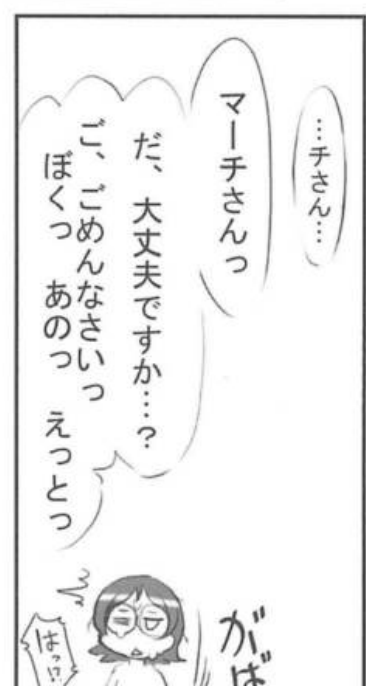 …チさん…
マーチさんっ
だ、大丈夫ですか…?
ご、ごめんなさいっ
ぼくっ あのっ えっとっ
がば
はっ!?